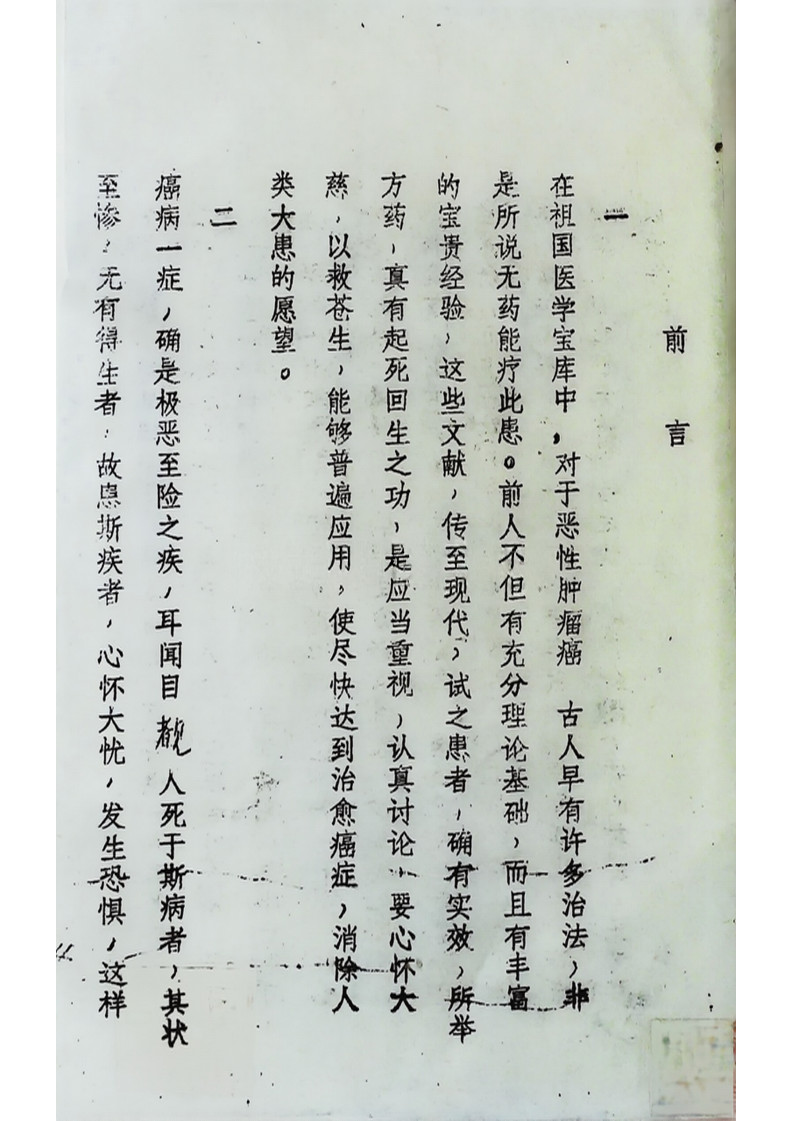 前言
一
在祖国医学宝库中，对于恶性肿瘤癌 古人早有许多治法，非
是所说无药能疗此患。前人不但有充分理论基础，而且有丰富
的宝贵经验，这些文献，传至现代，试之患者，确有实效，所举
方药，真有起死回生之功，是应当重视，认真讨论，要心怀大
慈，以救苍生，能够普遍应用，使尽快达到治愈癌症，消除人
类大患的愿望。
二
癌病一症，确是极恶至险之疾，耳闻目覩人死于斯病者，其状
至惨，无有得生者，故患斯疾者，心怀大忧，发生恐惧，这样